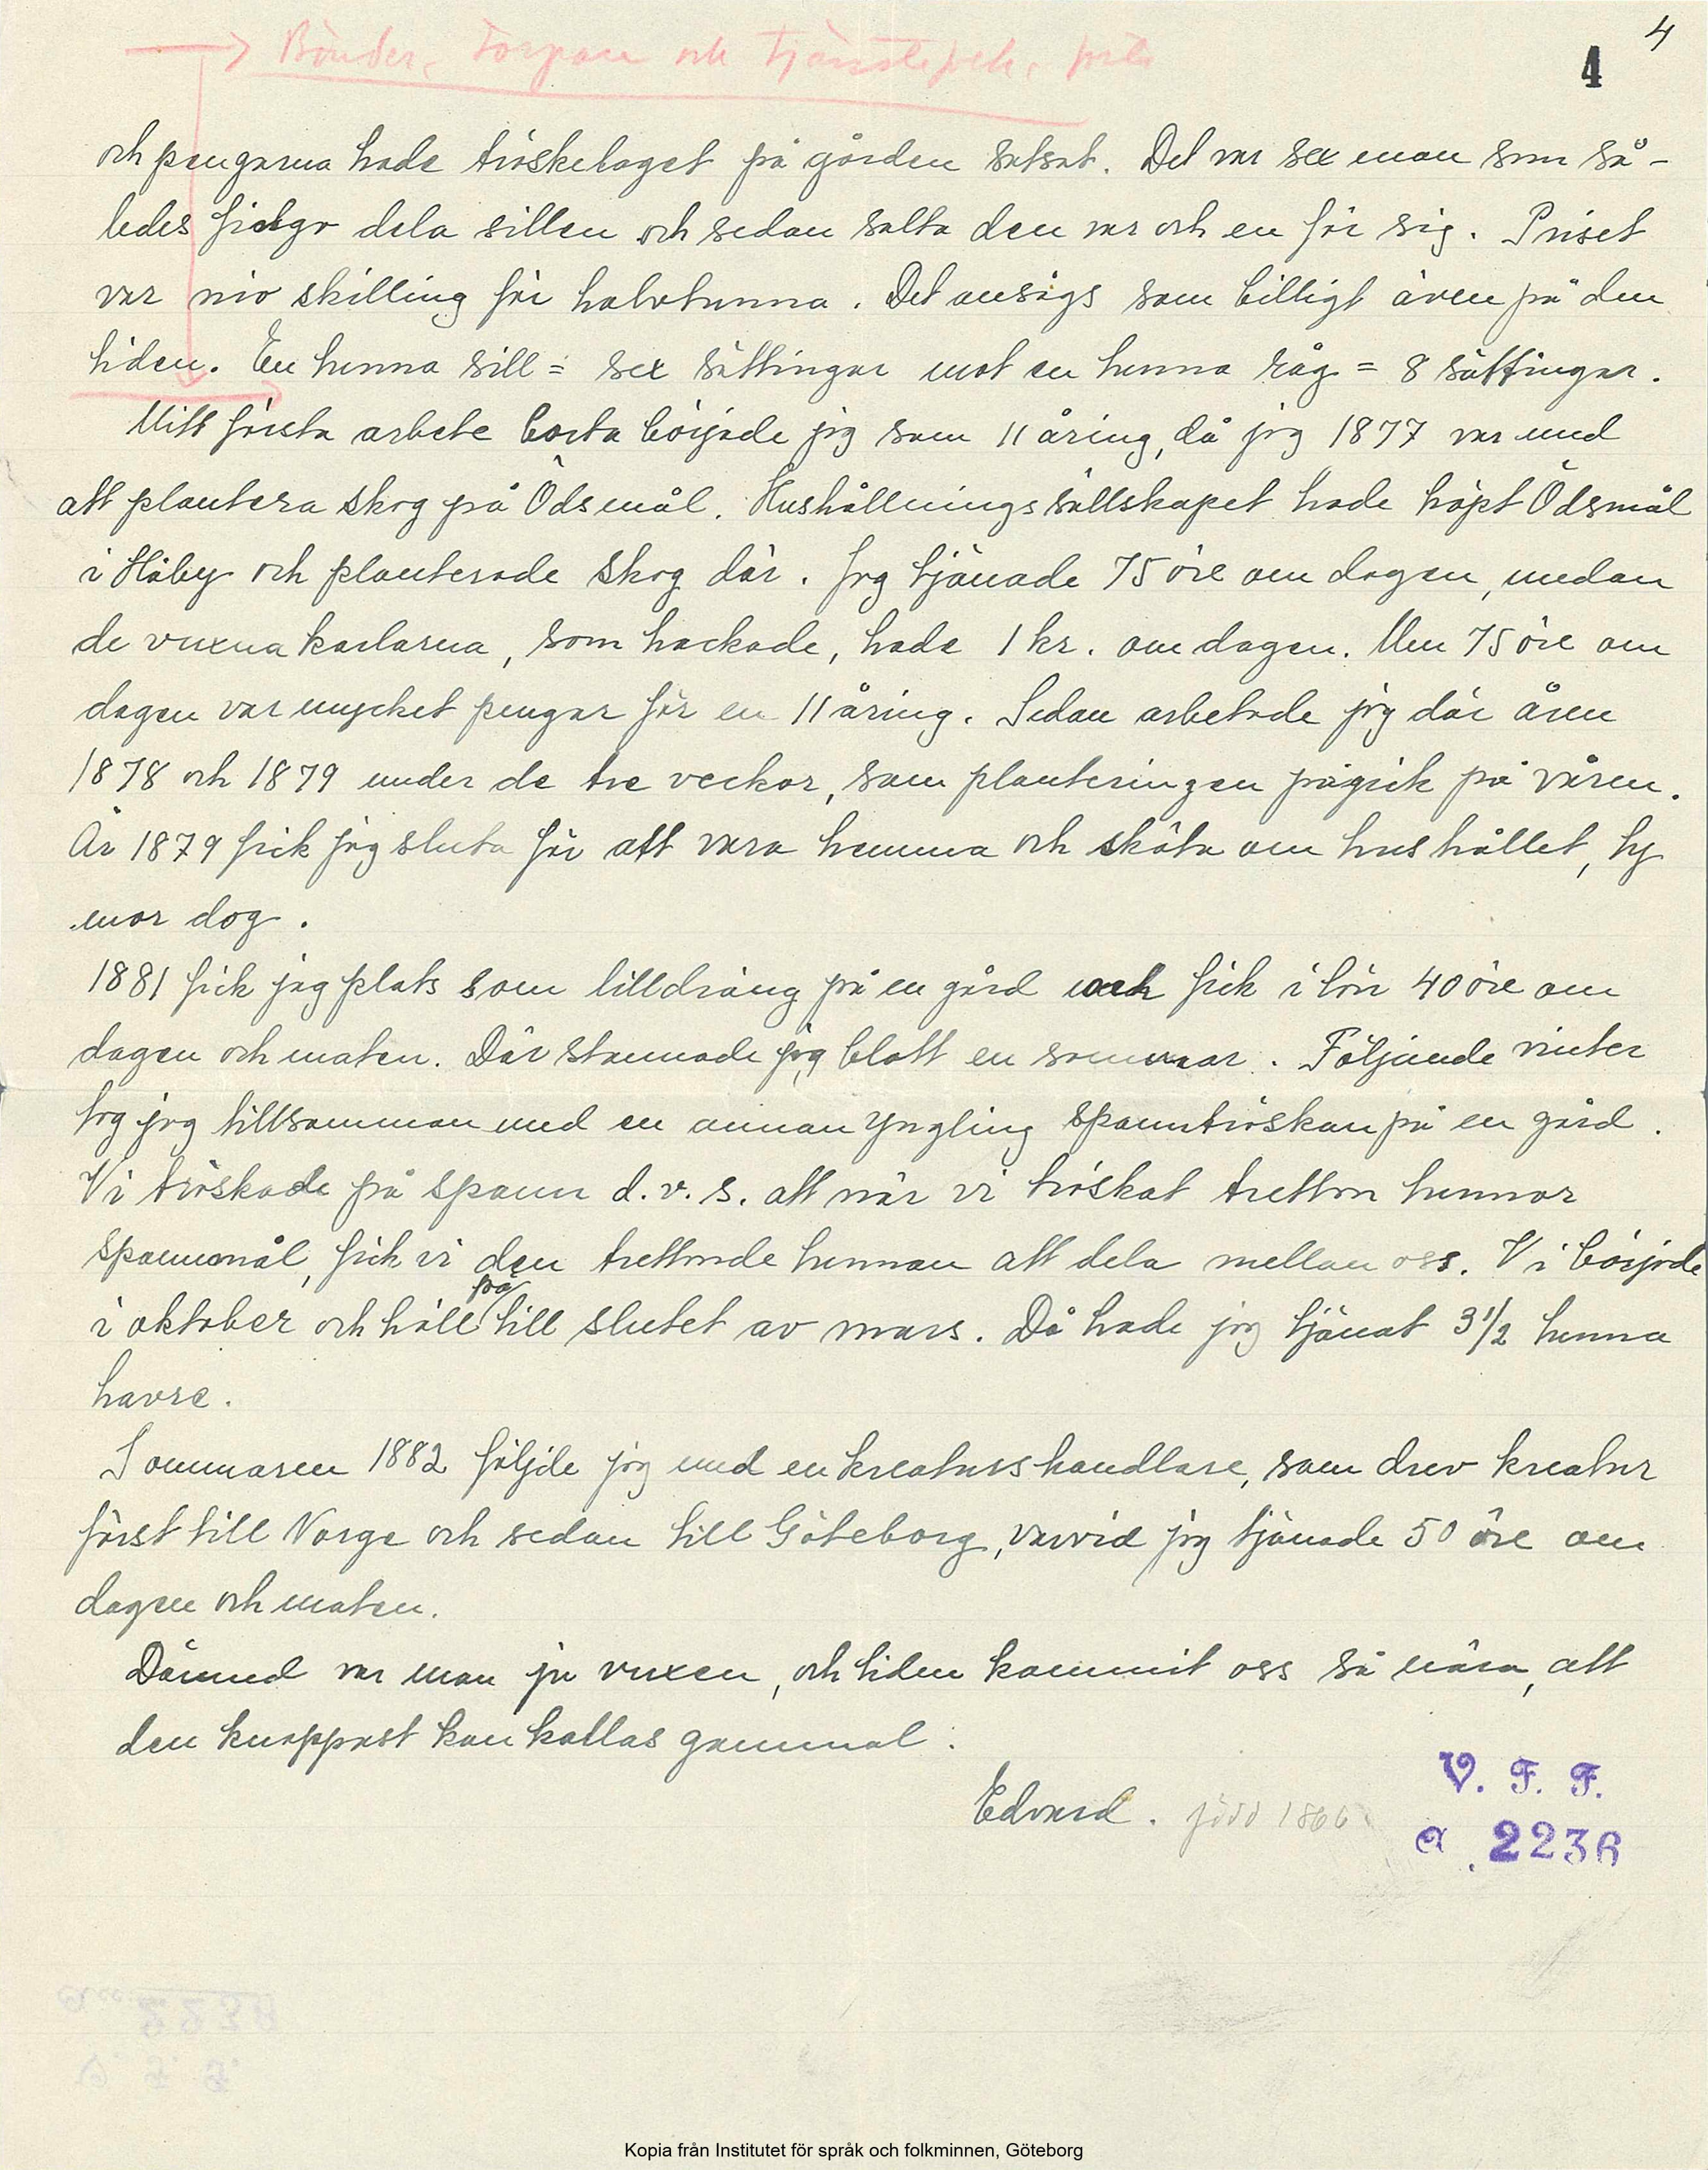 4
4
Bönder, Torpare och tjänstefolk,
och pengarna hade tröskelaget på gården satsat. Det var sex man som så-
ledes fingo dela sillen och sedan salta den var och en för sig. Priset
var nio skilling för halvtunna. Det ansågs som billigt även på den
tiden. En tunna sill = sex sättingar mot en tunna råg = 8 sättingar.
Mitt första arbete borta började jag som 11 åring, då jag 1877 var med
att plantera skog på Ödsmål. Hushållningssällskapet hade köpt Ödsmål
i Håby och planterade skog där. Jag tjänade 75 öre om dagen, medan
de vuxna karlarna, som hackade, hade 1 kr. om dagen. Men 75 öre om
dagen var mycket pengar för en 11 åring. Sedan arbetade jag där åren
1878 och 1879 under de tre veckor, som planteringen pågick på våren.
År 1879 fick jag sluta för att vara hemma och sköta om hushållet, ty
mor dog.
1881 fick jag plats som lilldräng på en gård och fick i lön 40 öre om
dagen och maten. Där stannade jag blott en sommar. Följande vinter
tog jag tillsamman med en annan yngling spanntröskan på en gård.
Vi tröskade på spann d.v.s. att när vi tröskat tretton tunnor
spannmål, fick vi den trettonde tunnan att dela mellan oss. Vi började
på
i oktober och höll till slutet av mars. Då hade jag tjänat 3 1/2 tunna
havre.
Sommaren 1882 följde jag med en kreaturshandlare, som drev kreatur
först till Norge och sedan till Göteborg, varvid jag tjänade 50 öre om
dagen och maten.
Därmed var man ju vuxen, och tiden kommit oss så nära, att
den knappast kan kallas gammal.
Edvard. född 1866
V. F. F.
a. 2236
Kopia från Institutet för språk och folkminnen, Göteborg